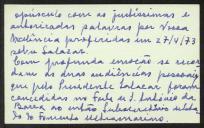 opúsculo com as justíssimas e
autorizadas palavras por Vossa
Excelência proferidas em 27/4/73
sobre Salazar.
Com profunda emoção se recor-
dam as duas audiências pessoais
que pelo Presidente Salazar foram
concedidas no Forte de S. António da
Barra ao então Subsecretário
do Fomento Ultramarino.